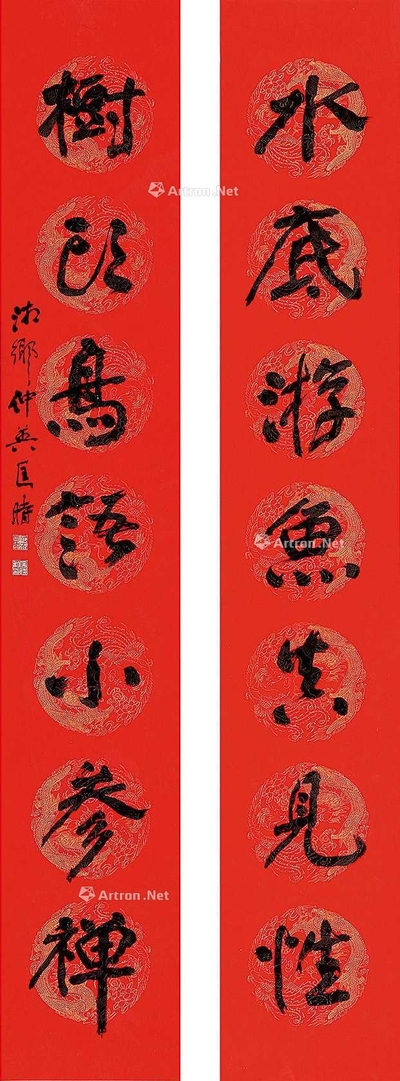 水底游魚真見性
樹頭鳥語小參禪
湘鄉仲英匡晴
Artron.Net
Artron.Net
Artron.Net
Artron.Net